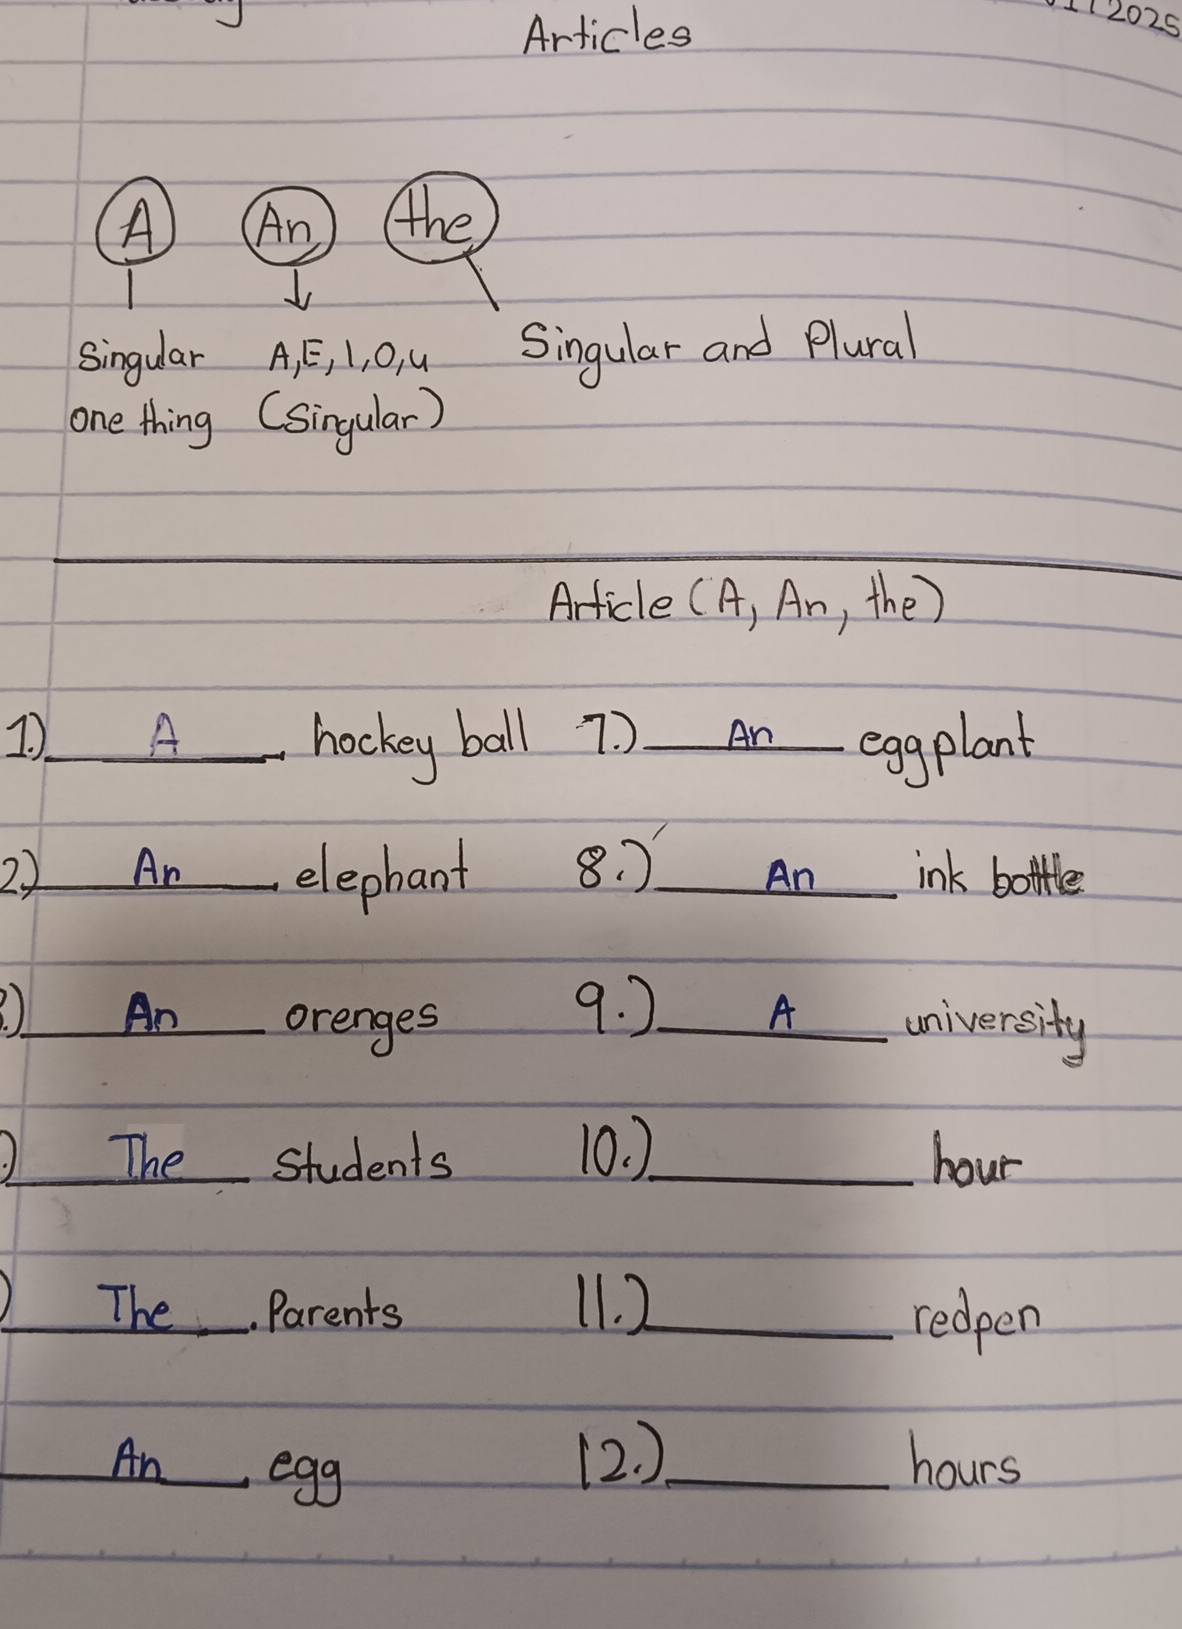 2025
Articles
A An the
Singular A,E,I,O,u Singular and Plural
one thing (Singular)
Article (A, An, the)
1.) A hockey ball 7.) An eggplant
2.) An elephant 8.) An ink bottle
3.) An orenges 9.) A university
) The students 10.) hour
) The Parents 11.) redpen
An egg 12.) hours